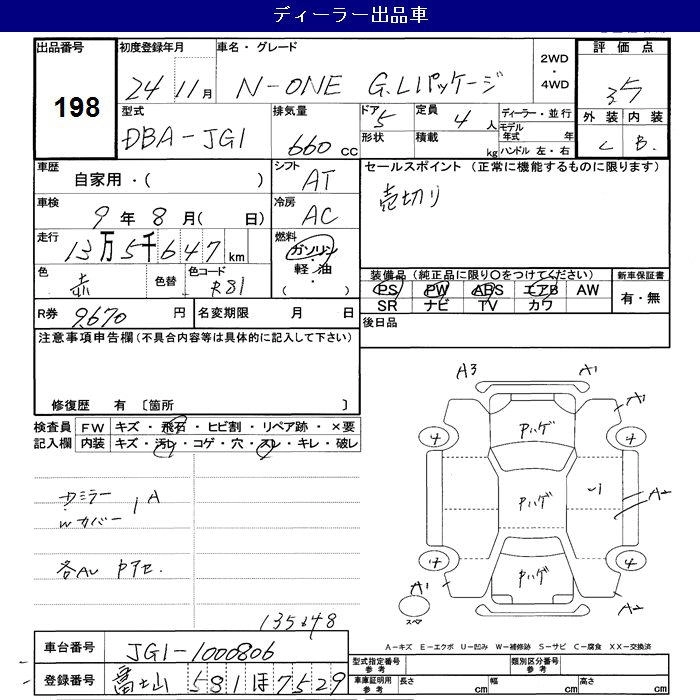 ディーラー出品車
出品番号 初度登録年月 車名・グレード 2WD・4WD 評価点
198 24 11月 N-ONE G.Lパッケージ 3.5
型式 排気量 ドア 定員 ディーラー・並行 外装 内装
DBA-JG1 660cc 5 4人 モデル年式 年 C B.
形状 積載 kg ハンドル 左・右
車歴 シフト セールスポイント (正常に機能するものに限ります)
自家用・( ) AT 売切り
車検 冷房
9年8月( 日) AC
走行 燃料
13万5千647km ガソリン・軽油・( )
色 色替 色コード 装備品 (純正品に限り○をつけてください) 新車保証書
赤 R81 PS PW ABS エアB AW 有・無
SR ナビ TV カワ
R券 9,670円 名変期限 月 日 後日品
注意事項申告欄(不具合内容等は具体的に記入して下さい)
修復歴 有 〔箇所 〕
検査員 FW キズ・飛石・ヒビ割・リペア跡・×要
記入欄 内装 キズ・汚レ・コゲ・穴・スレ・キレ・破レ
A3 A1
4 Pハゲ 4
Wカバー A
Pハゲ A2
各AU Pアセ.
4 Pハゲ 4
A1 A2
スペア
135648
A-キズ E-エクボ U-凹み W-補修跡 S-サビ C-腐食 XX-交換済
車台番号 JG1-1000806
登録番号 富士山 581 ほ 7529
型式指定番号 参考 類別区分番号 参考
車庫証明用 参考 長さ cm 幅 cm 高さ cm